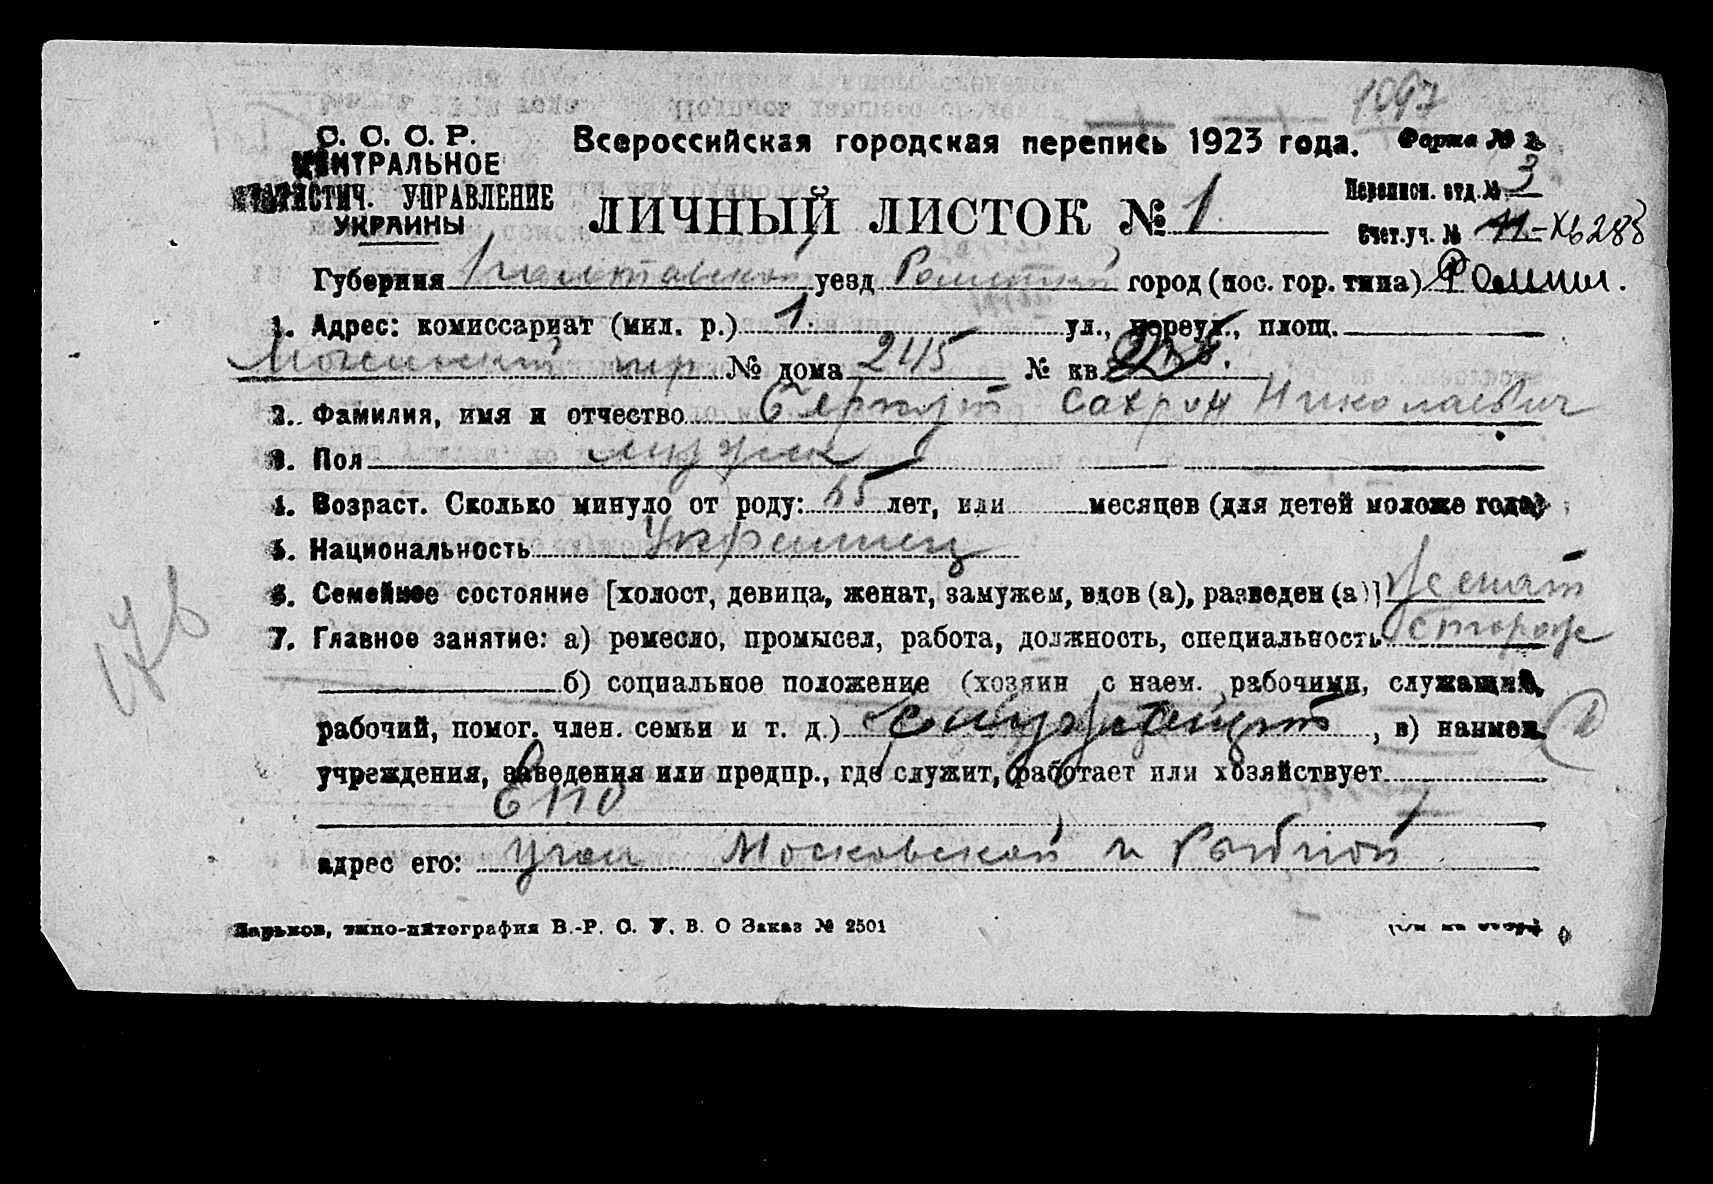 1097
С. С. С. Р.
ЦЕНТРАЛЬНОЕ
СТАТИСТИЧ. УПРАВЛЕНИЕ
УКРАИНЫ
Всероссийская городская перепись 1923 года.
Форма № 2
ЛИЧНЫЙ ЛИСТОК № 1.
Переписн. отд. № 3
Счет. уч. № 11-
Губерния Полтавской уезд город (пос. гор. типа) Ромни.
1. Адрес: комиссариат (мил. р.) 1. ул., переул., площ.
пер № дома 245 № кв.
2. Фамилия, имя и отчество Николаевич
3. Пол мужск
4. Возраст. Сколько минуло от роду: лет, или месяцев (для детей моложе года)
5. Национальность Украинец
6. Семейное состояние [холост, девица, женат, замужем, вдов (а), разведен (а)] женат
7. Главное занятие: а) ремесло, промысел, работа, должность, специальность сторож
б) социальное положение (хозяин с наем. рабочими, служащий,
рабочий, помог. член. семьи и т. д.) служащий, в) наимен.
учреждения, заведения или предпр., где служит, работает или хозяйствует
ЕПО
адрес его: угол Московской и Рыбной
Харьков, типо-литография В.-Р. С. У. В. О Заказ № 2501